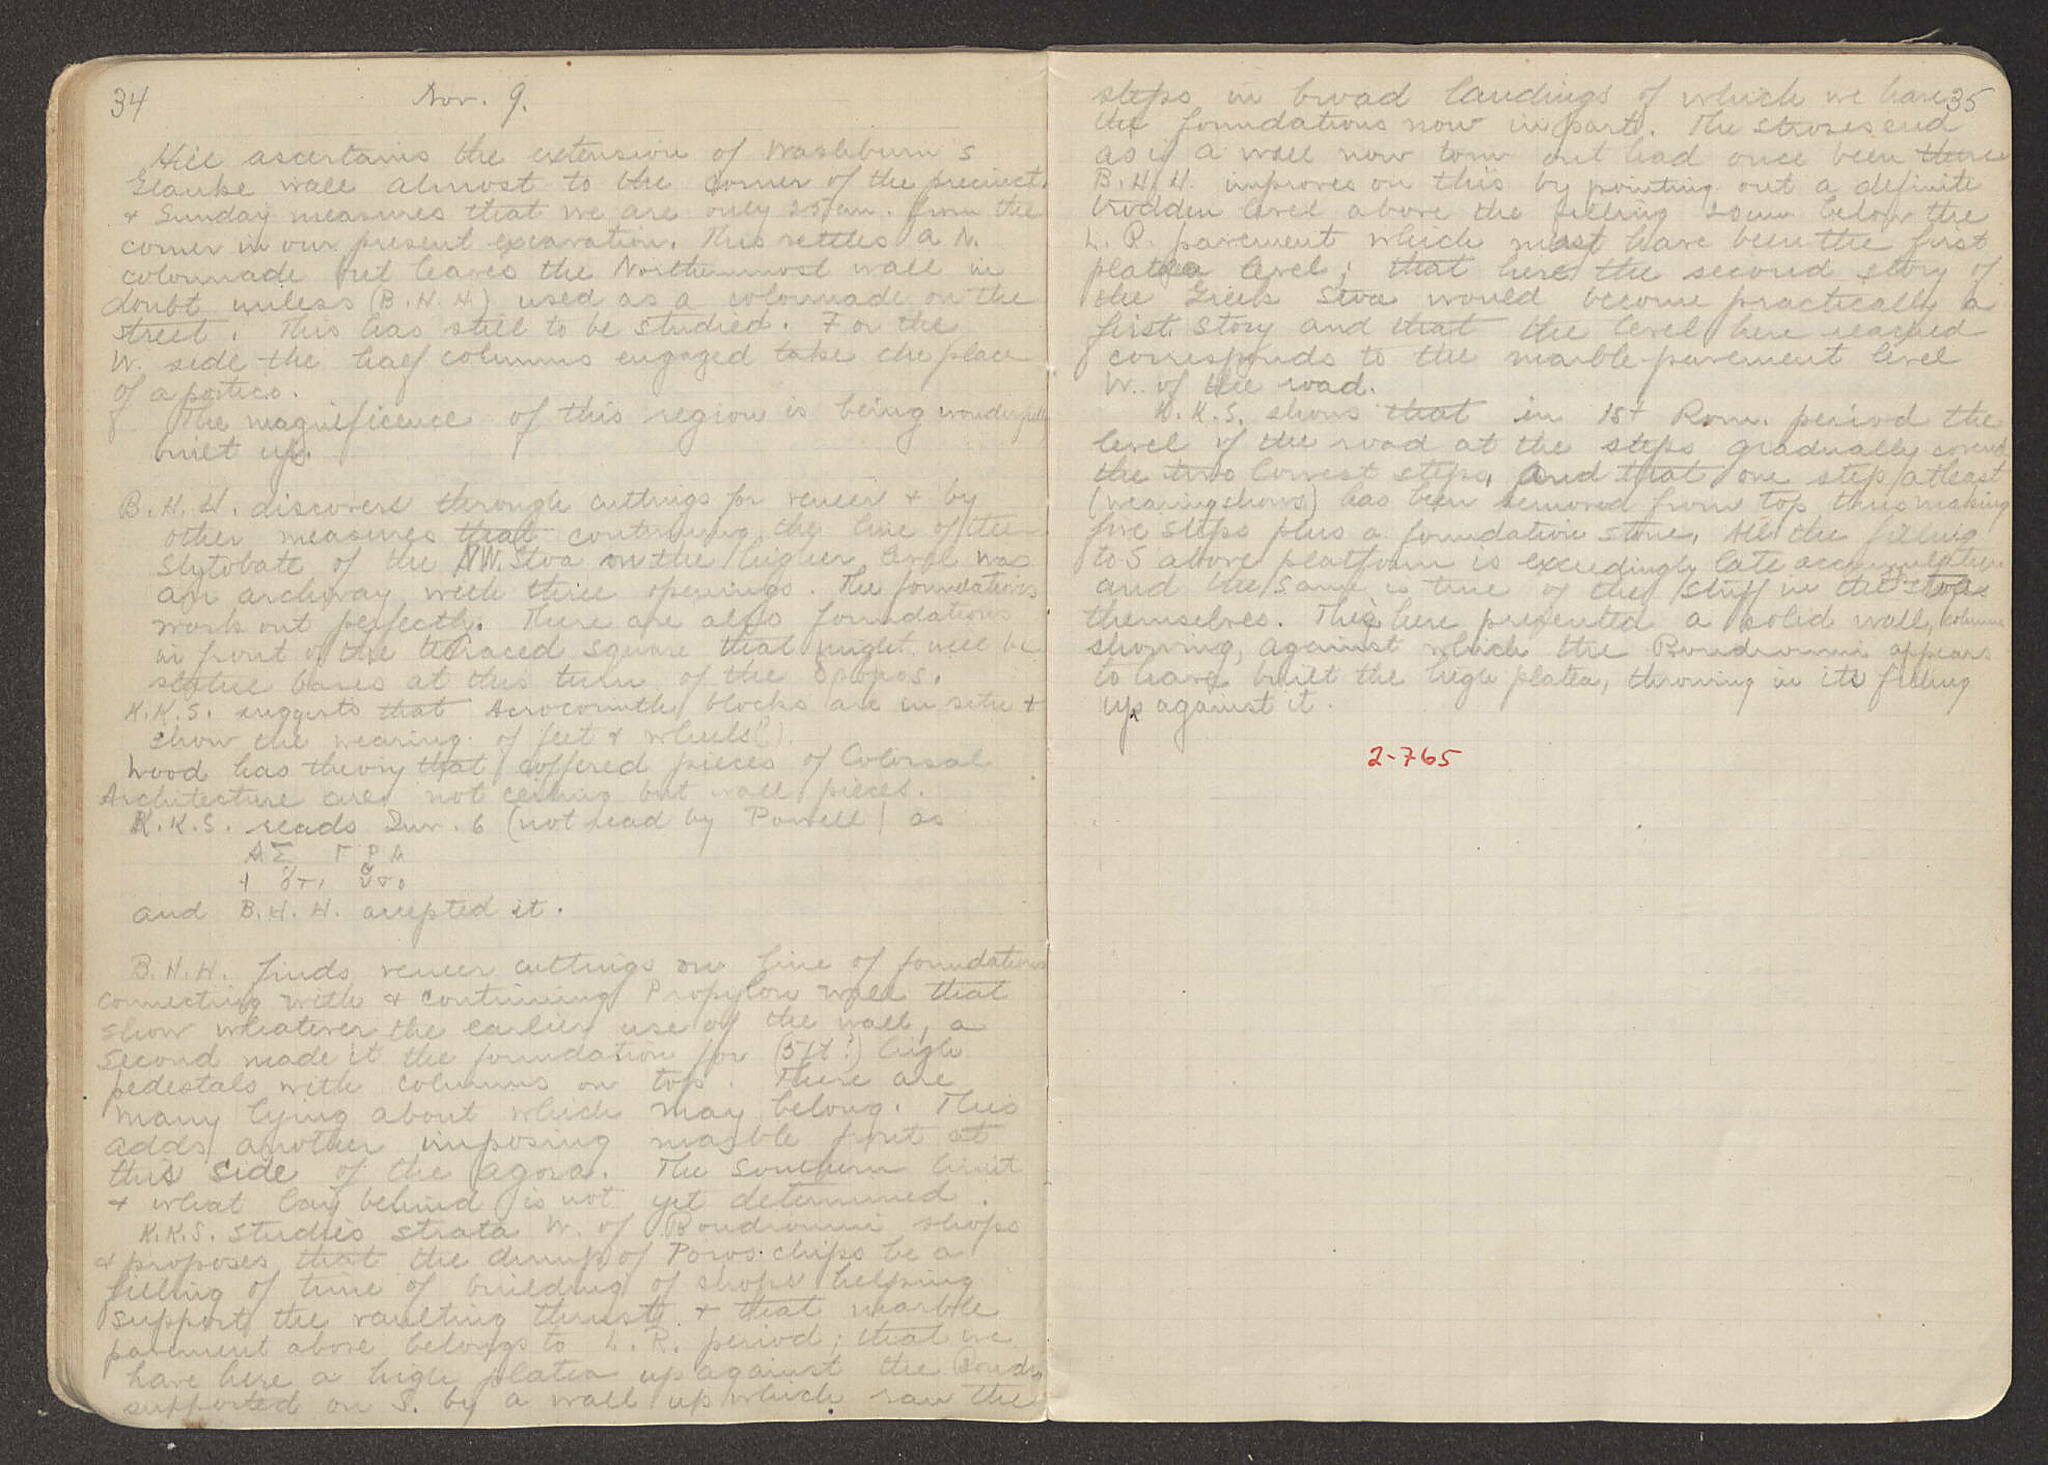 34
Nov. 9.
Hill ascertains the extension of Washburn's
Glauke wall almost to the corner of the precinct.
+ Sunday measures that we are only 25 cm. from the
corner in our present excavation. This settles a N.
colonnade but leaves the Northernmost wall in
doubt unless (B.H.H.) used as a colonnade on the
street. This has still to be studied. For the
W. side the half columns engaged take the place
of a portico.
The magnificence of this region is being wonderfully
built up.
B.H.H. discovers through cuttings for veneer + by
other measures that continuing the line of the
stylobate of the NW. Stoa on the higher level was
an archway with three openings. The foundations
work out perfectly. There are also foundations
in front of the terraced square that might well be
statue bases at this turn of the δρόμος.
K.K.S. suggests that Acrocorinth blocks are in situ +
show the wearing of feet + wheels(?).
Wood has theory that coffered pieces of Colossal
Architecture are not ceiling but wall pieces.
K.K.S. reads Inv. 6 (not read by Powell) as
ΑΣ Γ Ρ Α
and B.H.H. accepted it.
B.H.H. finds veneer cuttings on line of foundations
connecting with + continuing Propylon wall that
show whatever the earlier use of the wall, a
second made it the foundation for (5 ft?) high
pedestals with columns on top. There are
many lying about which may belong. This
adds another imposing marble front at
this side of the agora. The southern limit
+ what lay behind is not yet determined.
K.K.S. studies strata W. of Boudroumi shops
+ proposes that the dump of Poros chips be a
filling of time of building of shops helping
support the vaulting thrust + that marble
pavement above belongs to L.R. period; that we
have here a high platea up against the Boudr.
supported on S. by a wall up which ran the
35
steps in broad landings of which we have
the foundations now in part. The stroses end
as if a wall now torn out had once been there
B.H.H. improves on this by pointing out a definite
trodden level above the filling 20 cm below the
L.R. pavement which must have been the first
platea level; that here the second story of
the Greek Stoa would become practically a
first story and that the level here reached
corresponds to the marble pavement level
W. of the road.
K.K.S. shows that in 1st Rom. period the
level of the road at the steps gradually covered
the two lowest steps, and that one step at least
(wearing shows) has been removed from top thus making
five steps plus a foundation stone. All the filling
to S above platform is exceedingly late accumulation
and the same is true of the stuff in the stoas
themselves. This here presented a solid wall, columns
showing, against which the Boudroumi appears
to have built the high platea, throwing in its filling
up against it.
2-765